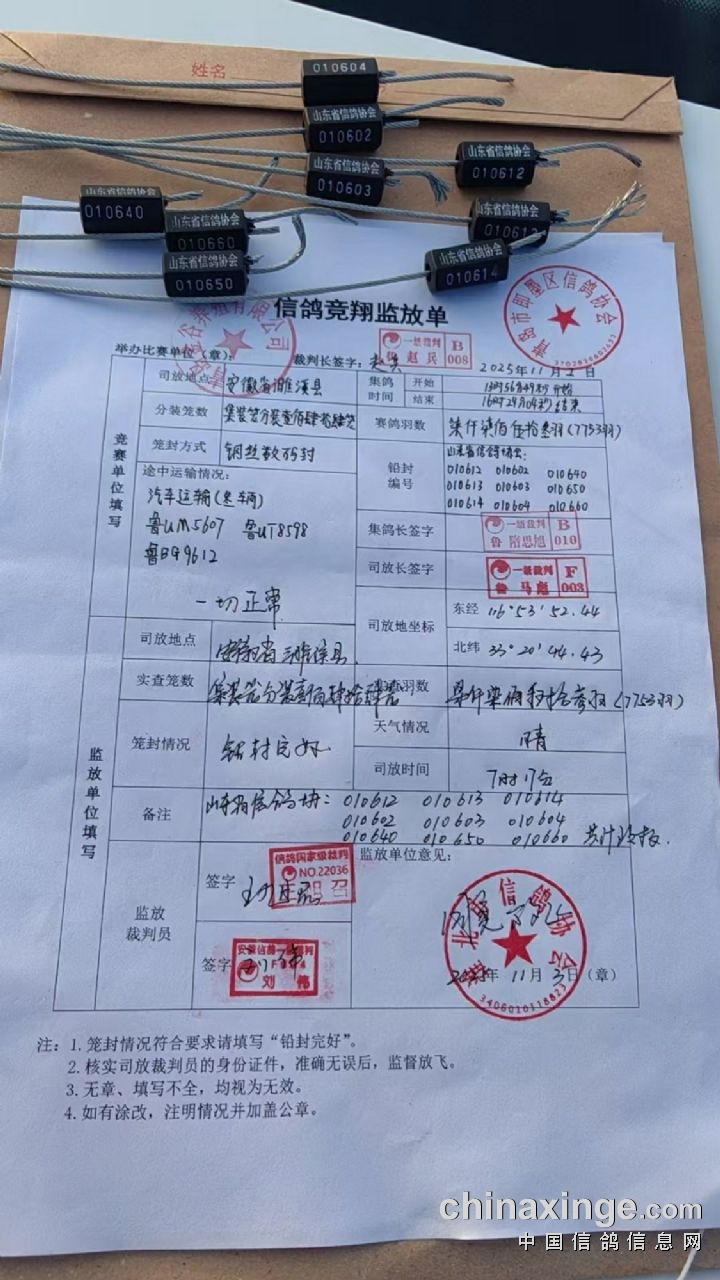 姓名
010604
山东省信鸽协会
010602
山东省信鸽协会
010603
山东省信鸽协会
010612
山东省信鸽协会
010640
山东省信鸽协会
010660
山东省信鸽协会
010613
山东省信鸽协会
010650
山东省信鸽协会
010614
信鸽竞翔监放单
青岛市即墨区信鸽协会
举办比赛单位(章): 裁判长签字: 一级裁判 赵兵 B 008
2025年11月2日
竞赛单位填写
司放地点 安徽省濉溪县
集鸽时间 开始 13时56分49秒开始
结束 16时29分04秒结束
分装笼数 集装笼分装壹佰肆拾肆笼
赛鸽羽数 柒仟柒佰伍拾叁羽(7753羽)
笼封方式 钢丝数码封
铅封编号 山东省信鸽协会:
010612 010602 010640
010613 010603 010650
010614 010604 010660
途中运输情况:
汽车运输(叁辆)
鲁UM5607 鲁UT8598
一切正常
集鸽长签字 一级裁判 B
鲁 隋思旭 010
司放长签字 一级裁判 F
鲁 马彪 003
司放地坐标 东经 116°53′52.44
北纬 33°20′44.43
监放单位填写
司放地点 安徽省濉溪县
实查笼数 集装笼分装壹百肆拾肆笼
实查羽数 柒仟柒佰伍拾叁羽(7753羽)
笼封情况 铅封完好
天气情况 晴
司放时间 7时17分
备注 山东省信鸽协: 010612 010613 010614
010602 010603 010604
010640 010650 010660 共计玖枚.
监放裁判员
签字 信鸽国家级裁判
NO.22036
签字 刘伟
刘 伟
监放单位意见:
淮北市信鸽协会
3406010118823
2025年11月3日(章)
注: 1.笼封情况符合要求请填写“铅封完好”。
2.核实司放裁判员的身份证件,准确无误后,监督放飞。
3.无章、填写不全,均视为无效。
4.如有涂改,注明情况并加盖公章。
chinaxinge.com
中国信鸽信息网